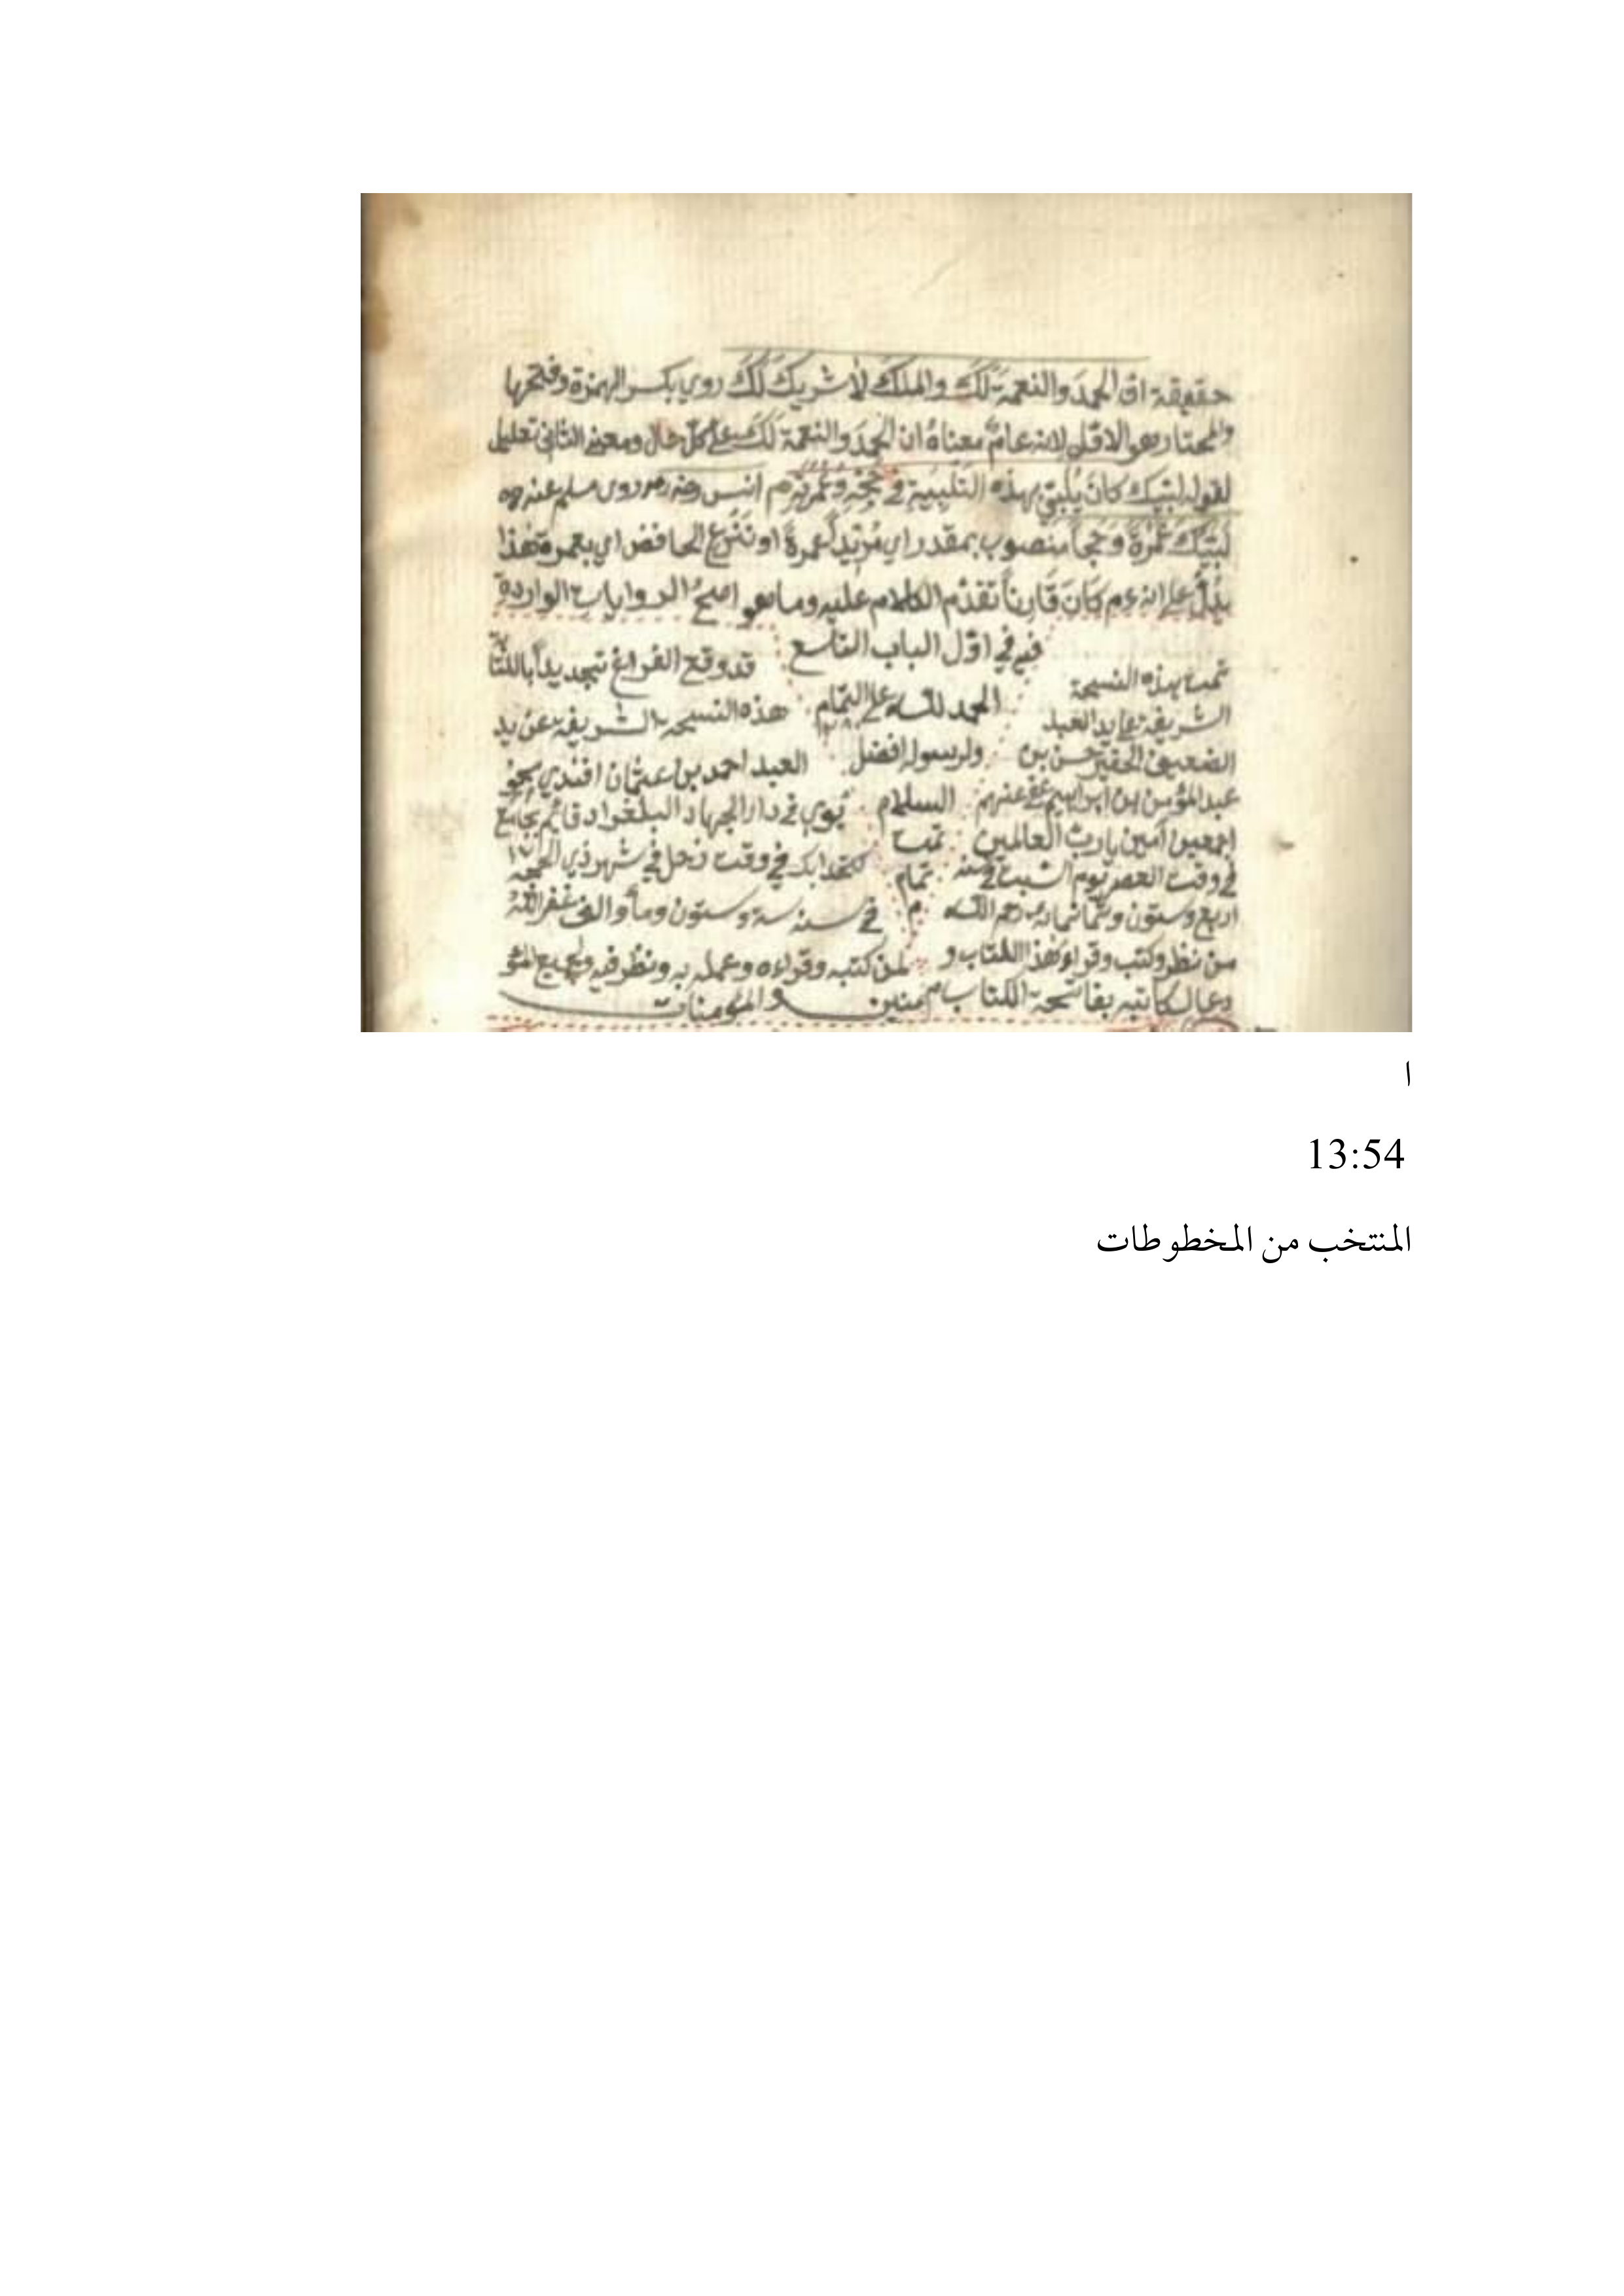 حقيقة ان الحمدَ والنعمة لَكَ والملكَ لا شريكَ لَكَ روي بكسر الهمزة وفتحها
والمختار هو الاوّل لانه عامٌ معناهُ ان الحمدَ والنعمة لَكَ على كلّ حال ومعنى الثانى تعليل
لقوله لبيك كانَ يُلبّي بهذه التلبية في حَجّهِ وعُمْرتِه م انس رضه روى مسلم عنه
لَبّيْكَ عُمْرَةً وَحَجاً منصوب بمقدر اي مُريْداً عمرةً او بنَزْعِ الخافض اي بعمرة هٰذا
يدُلُّ على انه ءم كانَ قَارِناً تقدّم الكلام عليه وما هو اصحُ الروايات الواردة
فيه في اوّل الباب التاسع
تمت بهذه النسخة
الشريفة على يد العبد
الضعيف الحقير حسن بن
عبد المؤمن بن ابراهيم عفى عنهم
اجمعين آمين يا ربّ العالمين
في وقت العصر يوم السبت في سنه
اربع وستون وثمانمايه رحم الله
من نظر وكتب وقراء هٰذا الكتاب و
دعا لكاتبه بفاتحة الكتاب م
الحمد لله على التمام
ولرسوله افضل
السلام
تمت
تمام
م
قد وقع الفراغ تجديداً
هذه النسخة الشريفة عن يد
العبد احمد بن عثمان افندي
في دار الجهاد البلغراد قائم بجامع
كتخدا بك في وقت زحل في شهر ذي الحجة
في سنه ستة وستون ومأ والف غفر اللهُ
لمن كتبه وقراءه وعمله به ونظر فيه ولجميع المؤ
منين والمؤمنات
ا
13:54
المنتخب من المخطوطات